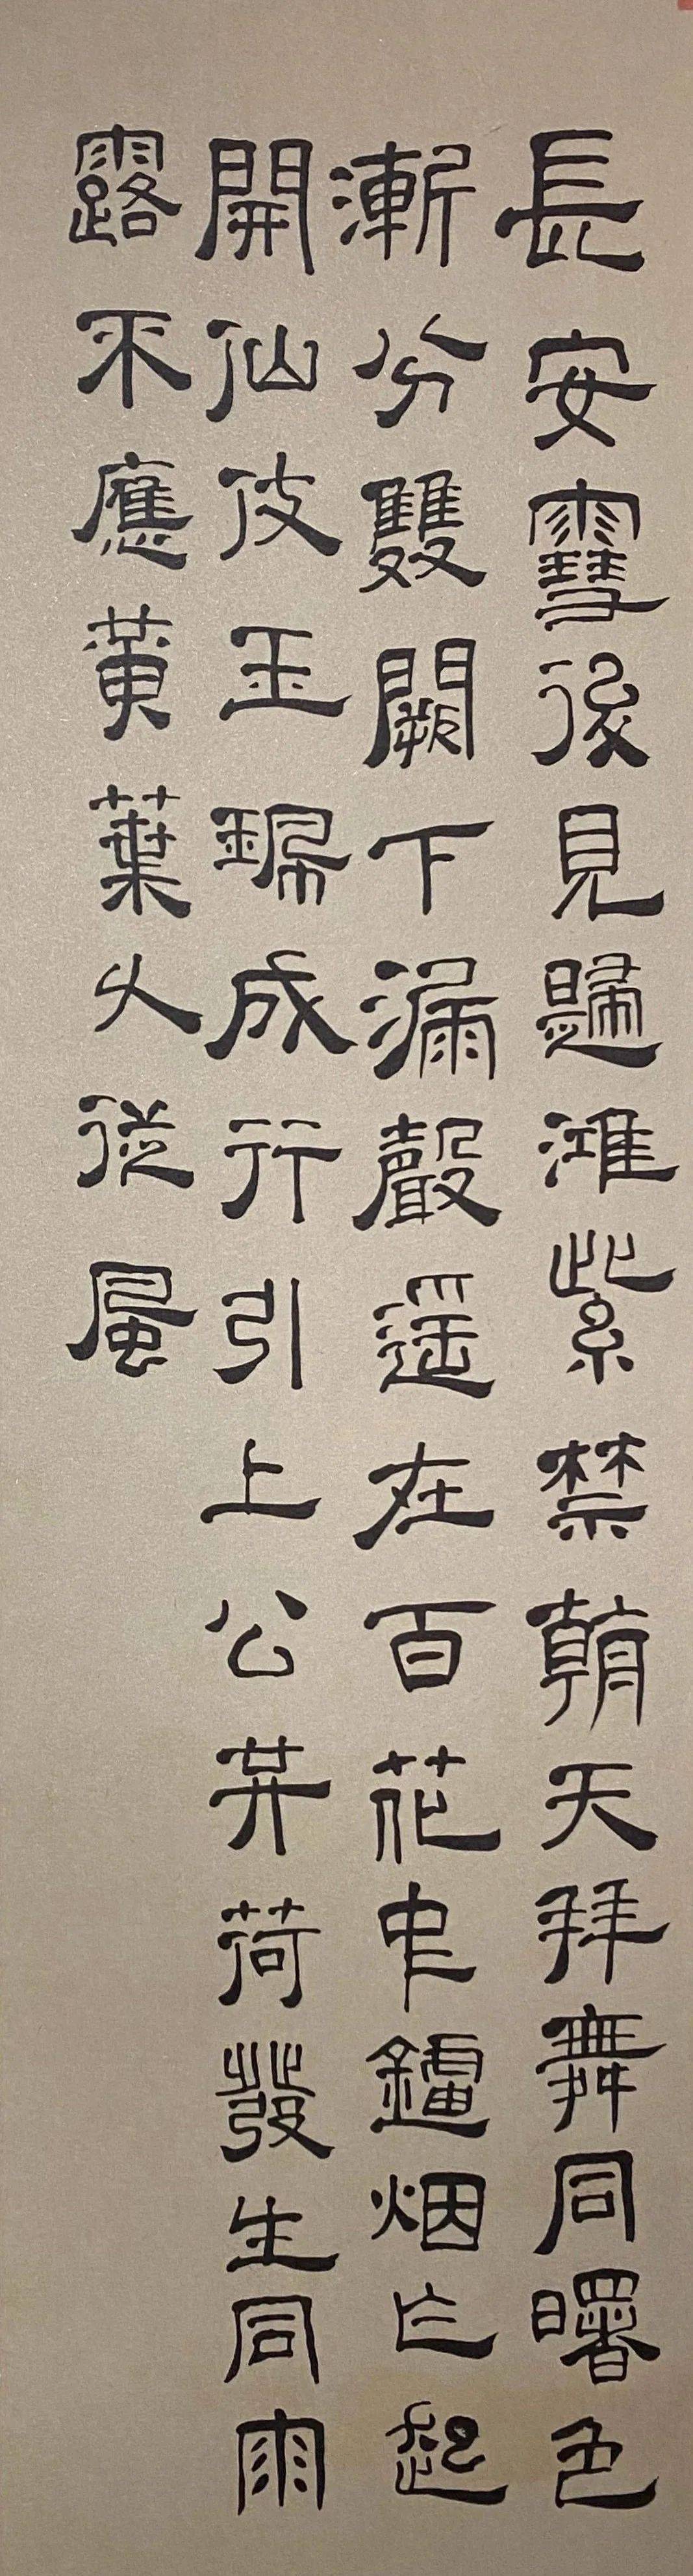 長安雪後見歸鴻紫禁朝天拜舞同曙色
漸分雙闕下漏聲遥在百花中鑪烟乍起
開仙仗玉珮成行引上公共荷發生同雨
露不應黃葉久從風